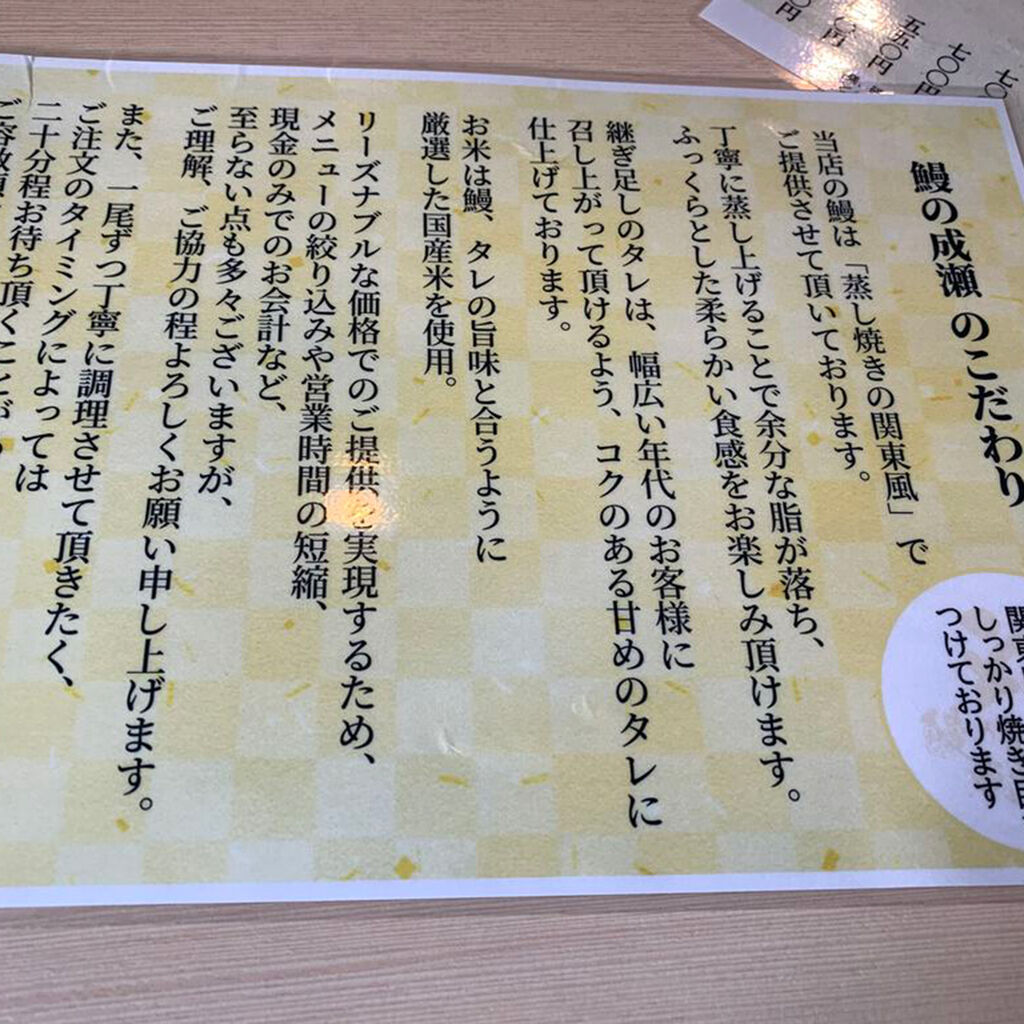 鰻の成瀬のこだわり
当店の鰻は「蒸し焼きの関東風」で
ご提供させて頂いております。
丁寧に蒸し上げることで余分な脂が落ち、
ふっくらとした柔らかい食感をお楽しみ頂けます。
継ぎ足しのタレは、幅広い年代のお客様に
召し上がって頂けるよう、コクのある甘めのタレに
仕上げております。
お米は鰻、タレの旨味と合うように
厳選した国産米を使用。
リーズナブルな価格でのご提供を実現するため、
メニューの絞り込みや営業時間の短縮、
現金のみでのお会計など、
至らない点も多々ございますが、
ご理解、ご協力の程よろしくお願い申し上げます。
また、一尾ずつ丁寧に調理させて頂きたく、
ご注文のタイミングによっては
二十分程お待ち頂くことが
しっかり焼き目
つけております
五五〇円
七〇〇円